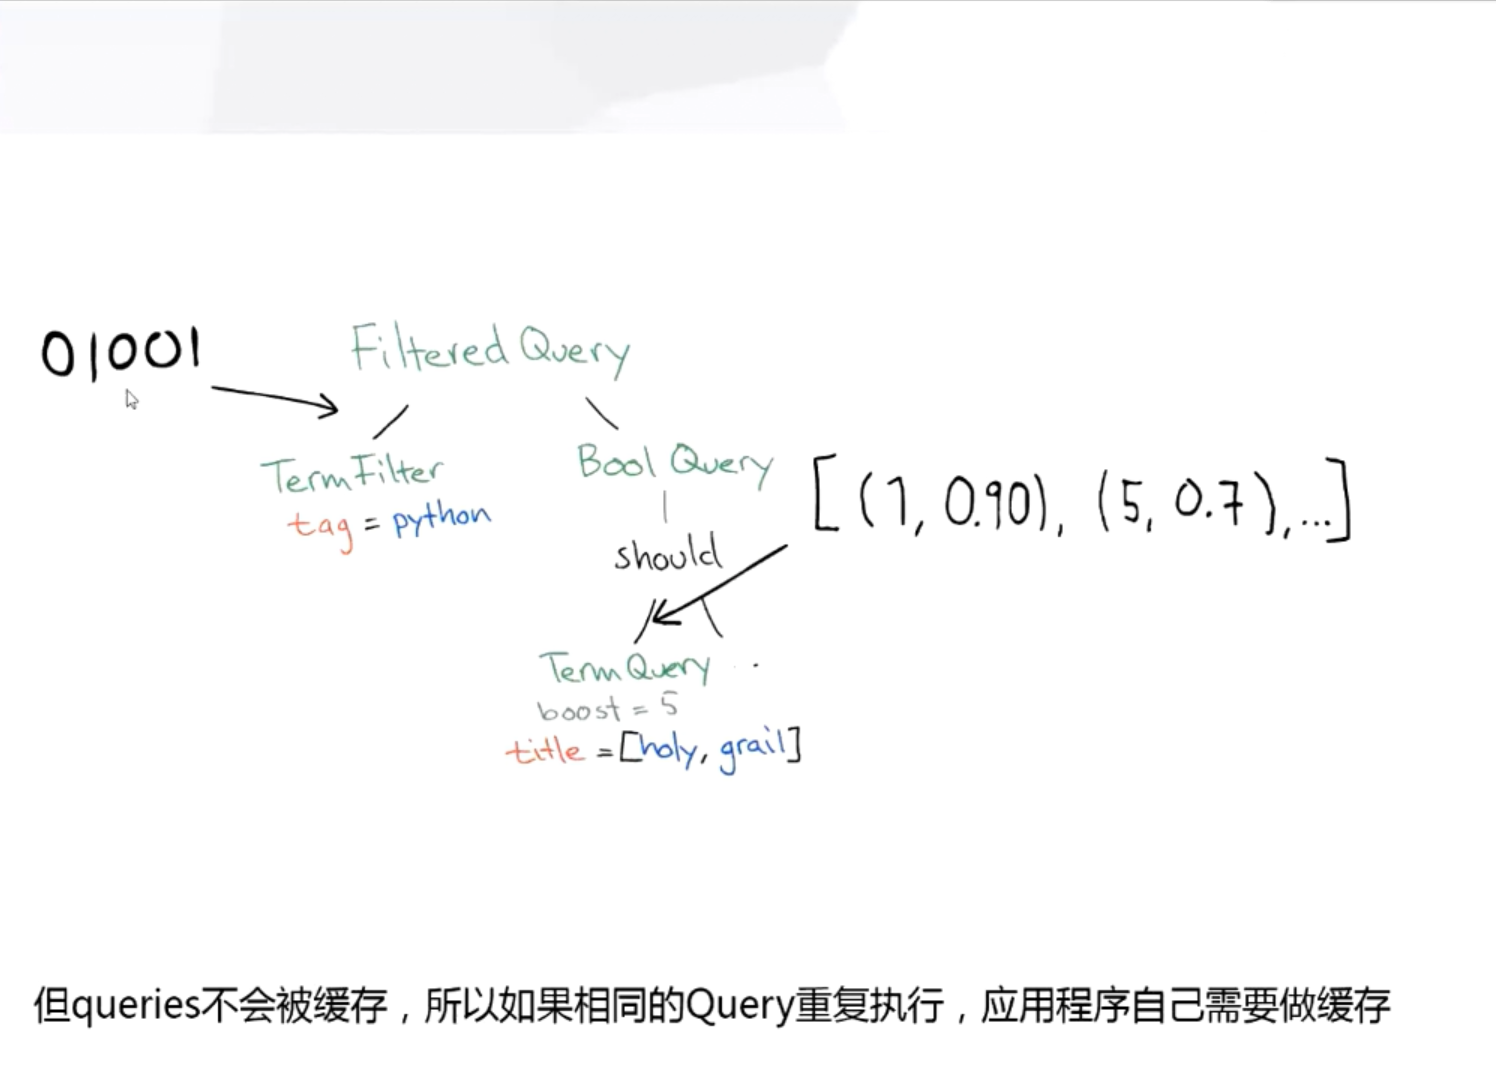 01001
Filtered Query
TermFilter
tag = python
Bool Query
should
[(1, 0.90), (5, 0.7),...]
TermQuery ..
boost = 5
title = [holy, grail]
但queries不会被缓存，所以如果相同的Query重复执行，应用程序自己需要做缓存